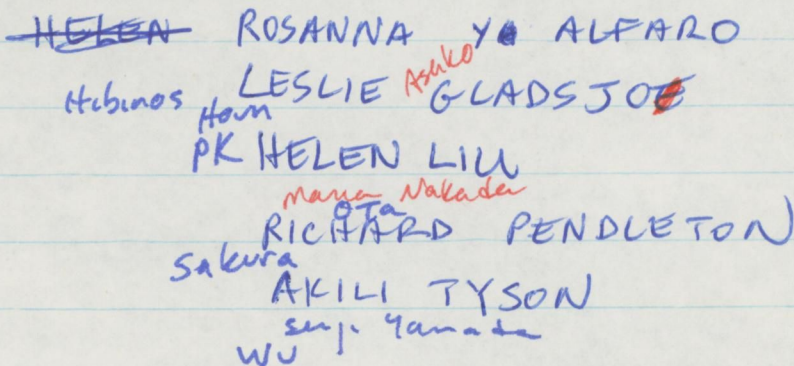 HELEN ROSANNA Y ALFARO
Asako
LESLIE GLADSJO
Hibinos
Horn
PK HELEN LIU
Maria Nakada
OTa
RICHARD PENDLETON
Sakura
AKILI TYSON
senji Yamada
WU